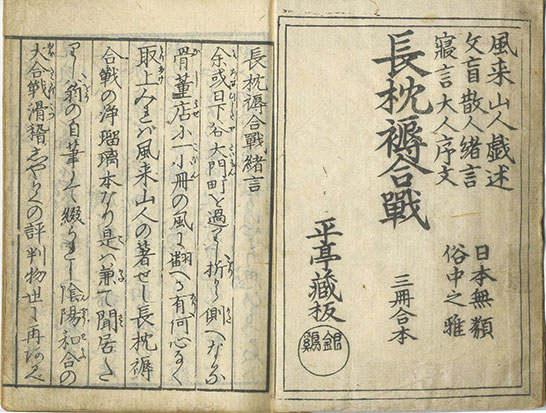 風来山人戯述
文盲散人緒言
寝言大人序文
長枕褥合戰
日本無類
俗中之雅
三冊合本
平亭藏板
銀鷄
長枕褥合戰緒言
余或日下谷大門町を過し折から側へなる
骨董店小一小冊の風に翻へる有何心なく
取上みれバ風来山人の著せし長枕褥
合戦の浄瑠璃本なり是ハ兼て聞居た
りし翁の自筆にて綴られし陰陽和合の
大合戦滑稽しやれの評判物世に再